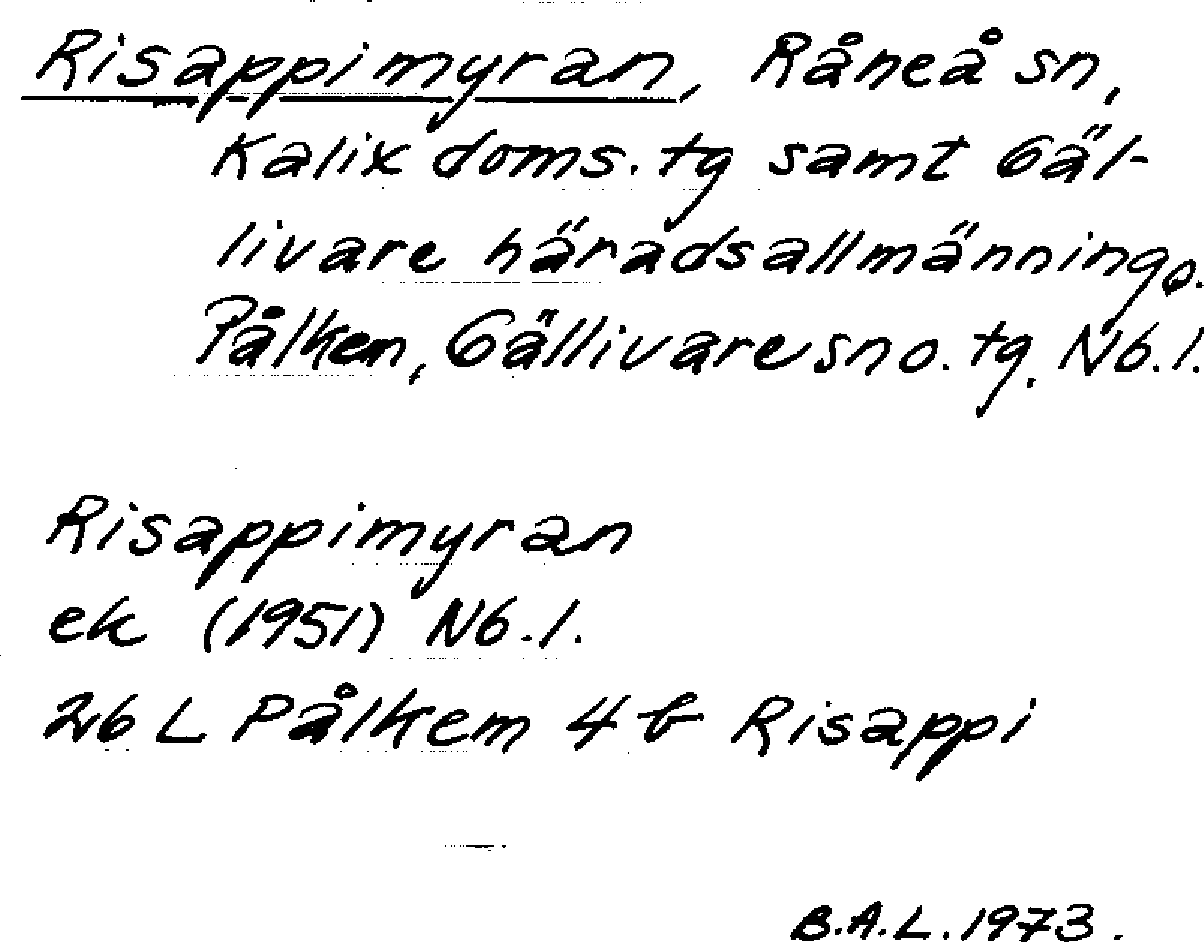 Risappimyran, Råneå sn,
Kalix doms. tg samt Gäl-
livare häradsallmänning o.
Pålkem, Gällivare sn o. tg. Nb. l.
Risappimyran
ek (1951) Nb. l.
26 L Pålkem 4 b Risappi
B.A.L. 1973.